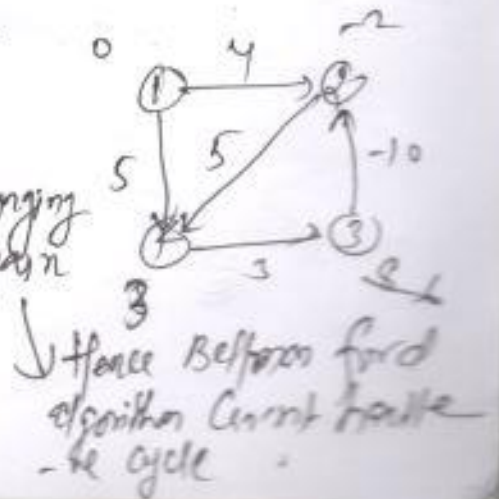 0
-2
1
4
2
5
5
-10
4
3
3
3
8
Hence Bellman ford
algorithm Cannot handle
-ve cycle